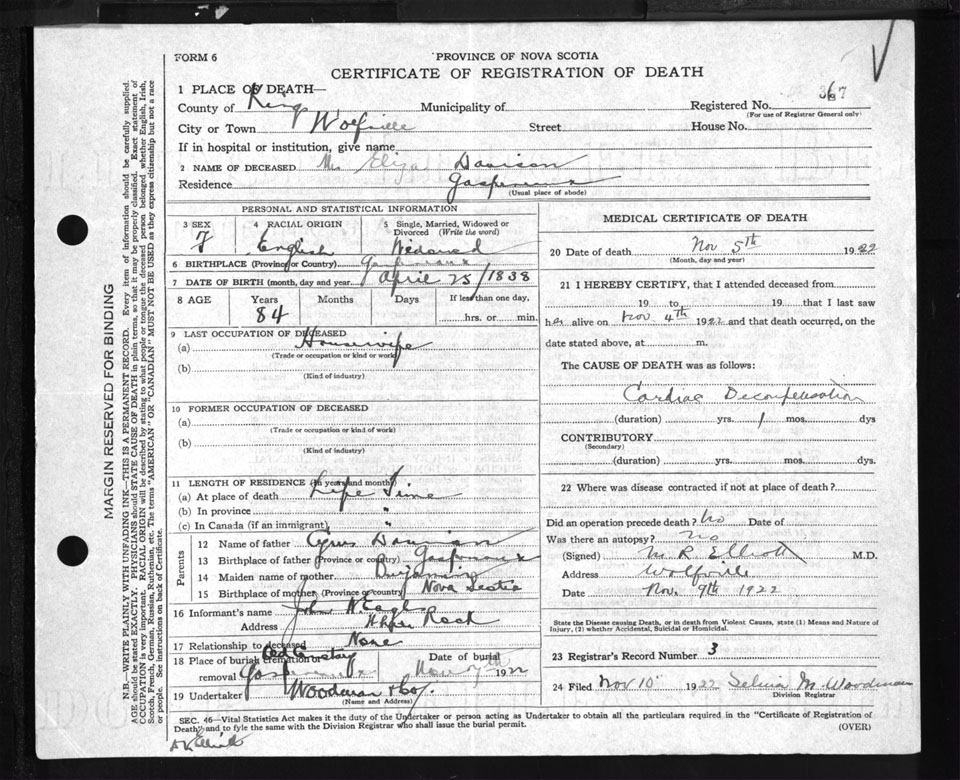 FORM 6
PROVINCE OF NOVA SCOTIA
CERTIFICATE OF REGISTRATION OF DEATH
1 PLACE OF DEATH—
County of Kings Municipality of Registered No. 367
(For use of Registrar General only)
City or Town Wolfville Street House No.
If in hospital or institution, give name
2 NAME OF DECEASED Mrs Eliza Davison
Residence Gaspereaux
(Usual place of abode)
PERSONAL AND STATISTICAL INFORMATION
3 SEX F
4 RACIAL ORIGIN English
5 Single, Married, Widowed or Divorced (Write the word) Widowed
6 BIRTHPLACE (Province or Country) Gaspereaux
7 DATE OF BIRTH (month, day and year) April 25/1838
8 AGE Years 84 Months Days If less than one day, hrs. or min.
9 LAST OCCUPATION OF DECEASED
(a) Housewife
(Trade or occupation or kind or work)
(b)
(Kind of industry)
10 FORMER OCCUPATION OF DECEASED
(a)
(Trade or occupation or kind of work)
(b)
(Kind of industry)
11 LENGTH OF RESIDENCE (in years and months)
(a) At place of death Life Time
(b) In province "
(c) In Canada (if an immigrant) "
Parents
12 Name of father Cyrus Davison
13 Birthplace of father (Province or country) Gaspereaux
14 Maiden name of mother Benjamin
15 Birthplace of mother (Province or country) Nova Scotia
16 Informant's name John N Eagles
Address Rock
17 Relationship to deceased None
18 Place of burial cremation or removal Date of burial Nov 7th 1922
19 Undertaker Woodman & Co.
(Name and Address)
MEDICAL CERTIFICATE OF DEATH
20 Date of death Nov 5th 1922
(Month, day and year)
21 I HEREBY CERTIFY, that I attended deceased from
19 to 19 that I last saw
her alive on Nov. 4th 1922 and that death occurred, on the
date stated above, at m.
The CAUSE OF DEATH was as follows:
Cardiac Decompensation
(duration) yrs. 1 mos. dys
CONTRIBUTORY
(Secondary)
(duration) yrs. mos. dys.
22 Where was disease contracted if not at place of death?
Did an operation precede death? No Date of
Was there an autopsy? no
(Signed) M. R. Elliott M.D.
Address Wolfville
Date Nov. 9th 1922
State the Disease causing Death, or in death from Violent Causes, state (1) Means and Nature of
Injury, (2) whether Accidental, Suicidal or Homicidal.
23 Registrar's Record Number 3
24 Filed Nov 10 1922 Selwin M. Woodman
Division Registrar
SEC. 46—Vital Statistics Act makes it the duty of the Undertaker or person acting as Undertaker to obtain all the particulars required in the "Certificate of Registration of
Death" and to fyle the same with the Division Registrar who shall issue the burial permit.
(OVER)
MARGIN RESERVED FOR BINDING
N.B.—WRITE PLAINLY WITH UNFADING INK—THIS IS A PERMANENT RECORD. Every item of information should be carefully supplied.
AGE should be stated EXACTLY. PHYSICIANS should STATE CAUSE OF DEATH in plain terms, so that it may be properly classified. Exact statement of
OCCUPATION is very important. RACIAL ORIGIN will be described by stating to what people or tongue the deceased person belonged whether English, Irish,
Scotch, French, German, Russian, Ruthenian, etc. The terms "AMERICAN" or "CANADIAN" MUST NOT BE USED as they express citizenship but not a race
or people. See instructions on back of Certificate.